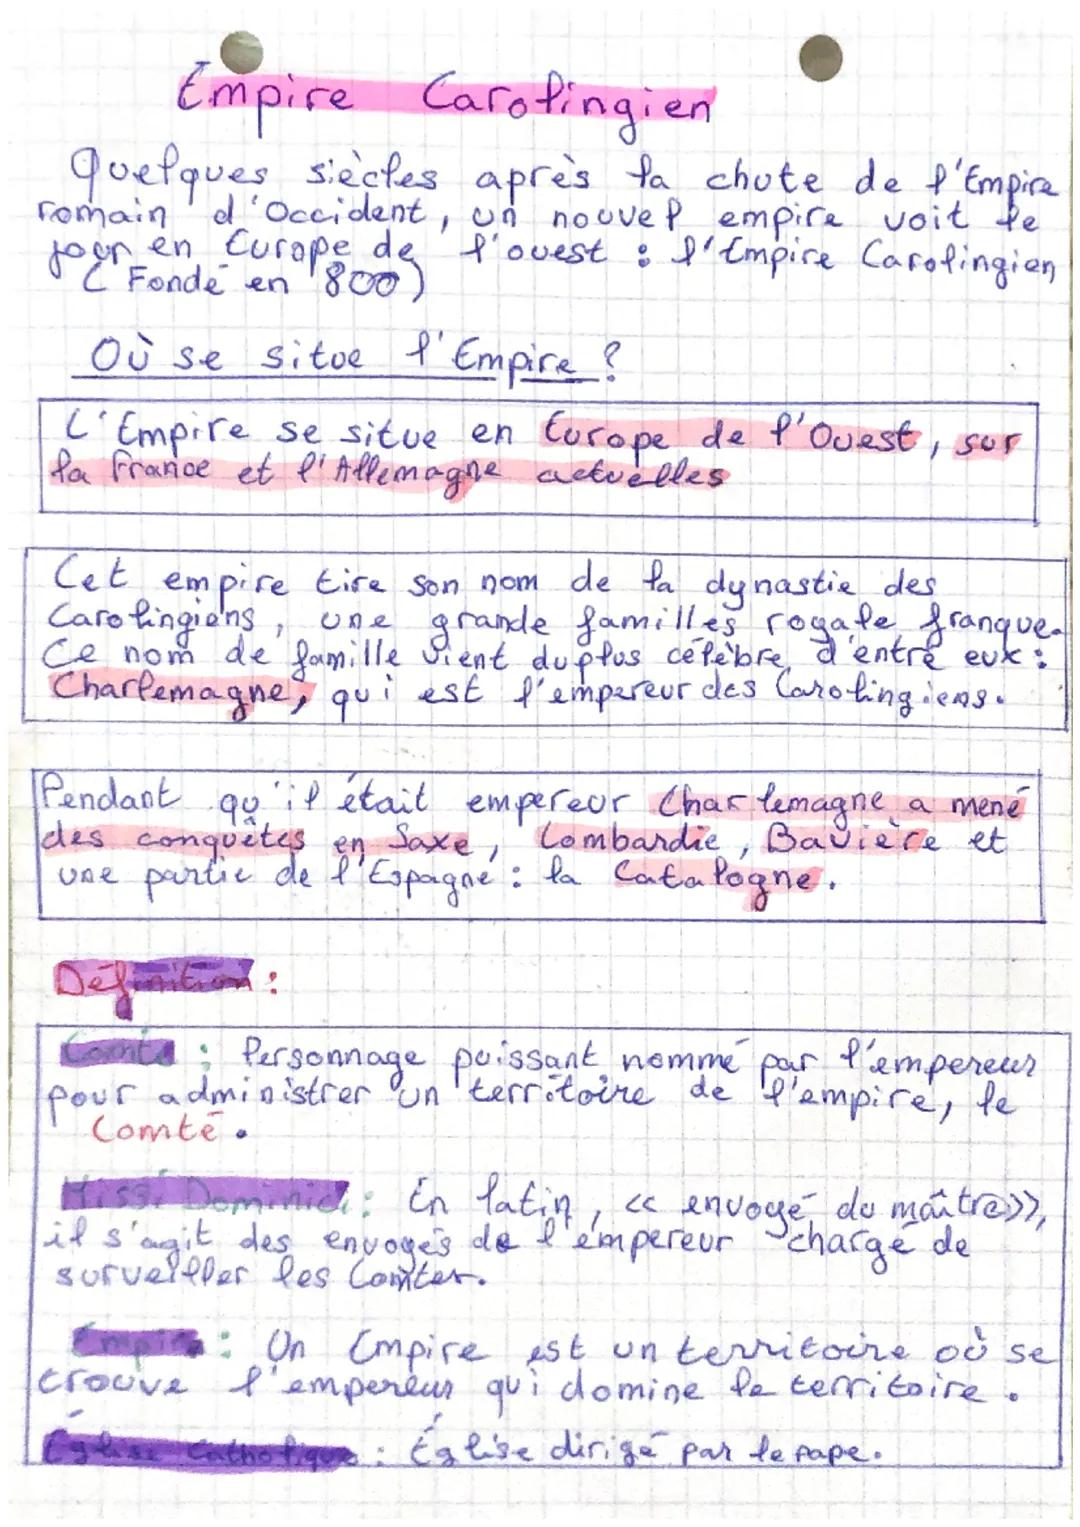 Empire Carolingien
Quelques siècles après la chute de l'Empire
romain d'Occident, un nouvel empire voit le
jour en Europe de l'ouest : l'Empire Carolingien
( Fondé en 800)
Où se situe l'Empire ?
L'Empire se situe en Europe de l'Ouest, sur
la France et l'Allemagne actuelles
Cet empire tire son nom de la dynastie des
Carolingiens, une grande familles royale franque.
Ce nom de famille vient du plus célèbre d'entre eux :
Charlemagne, qui est l'empereur des Carolingiens.
Pendant qu'il était empereur Charlemagne a mené
des conquêtes en Saxe, Lombardie, Bavière et
une partie de l'Espagne : la Catalogne.
Définition :
Comte : Personnage puissant nommé par l'empereur
pour administrer un territoire de l'empire, le
Comté.
Missi Dominici : En latin, << envoyé du maître>>,
il s'agit des envoyés de l'empereur chargé de
surveiller les Comtes.
Empire : Un Empire est un territoire où se
trouve l'empereur qui domine le territoire.
Église Catholique : Église dirigé par le pape.